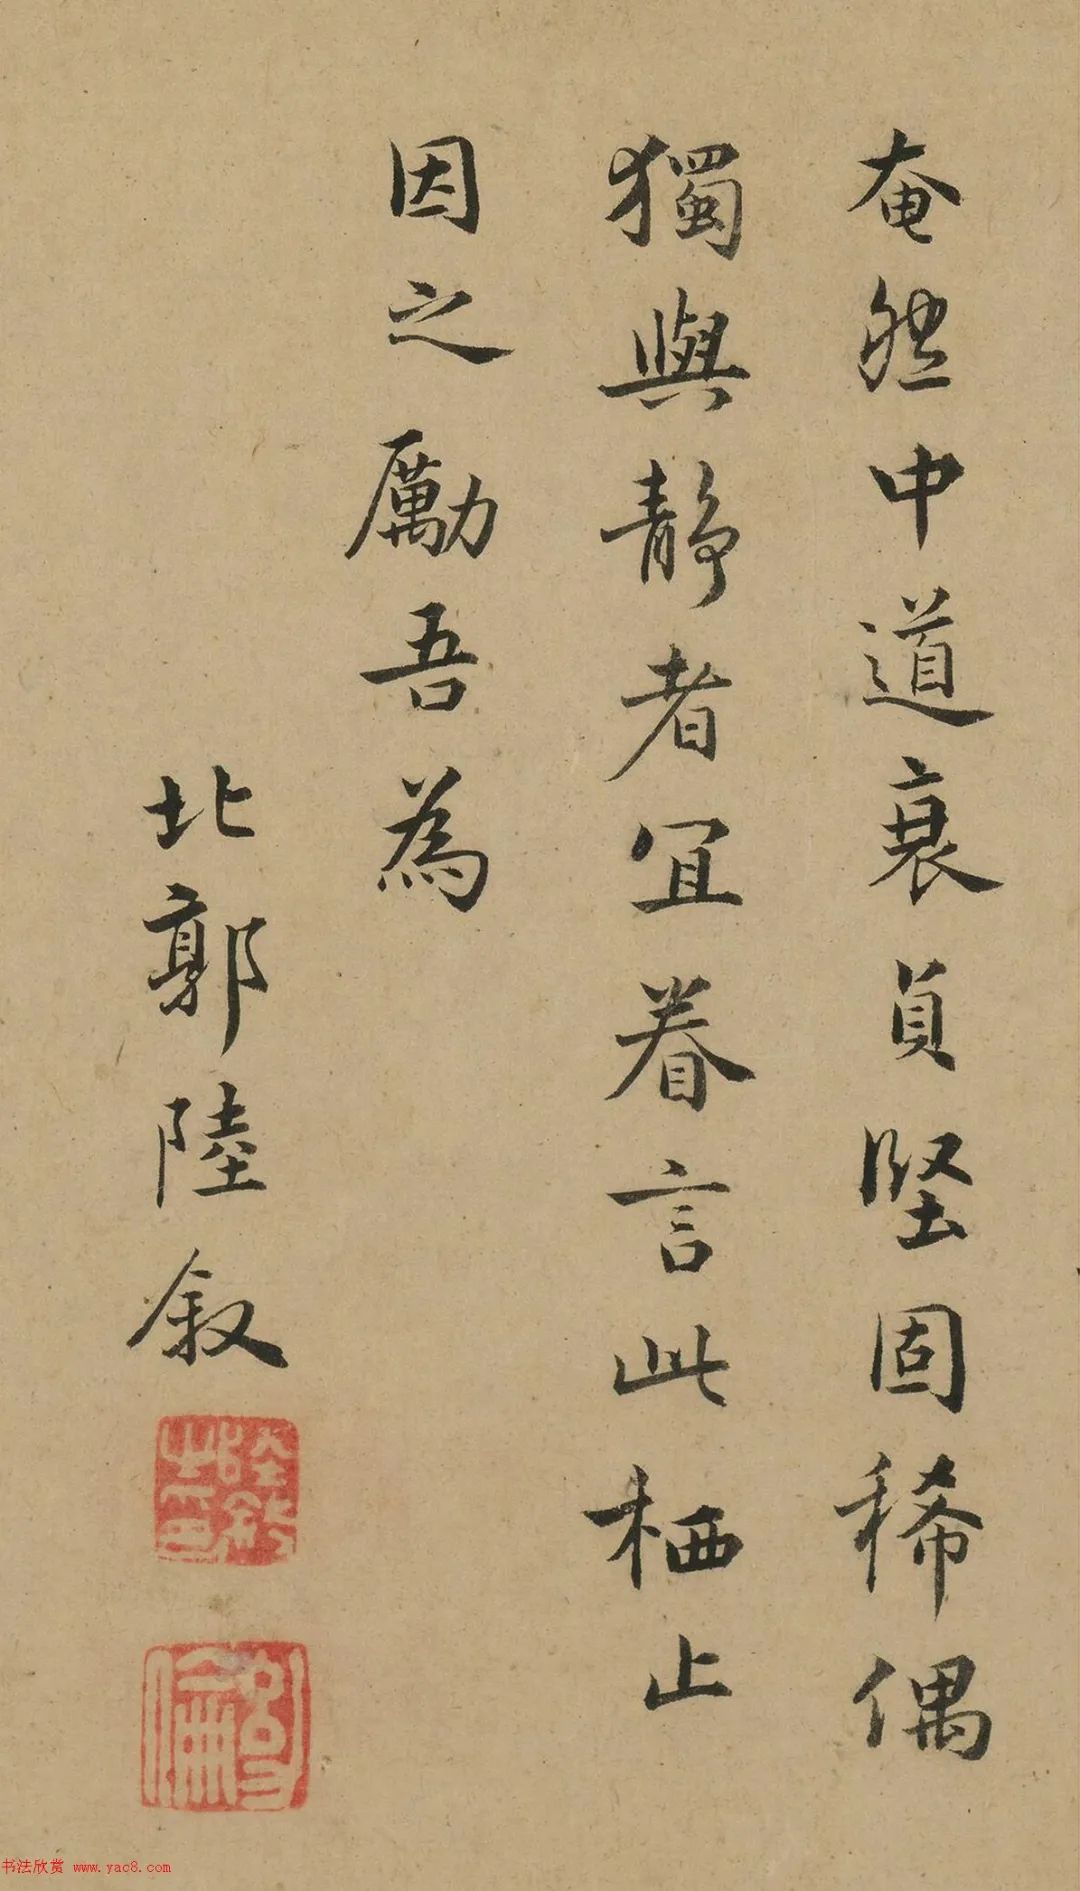 奄然中道衰貞堅固稀偶
獨與静者宜眷言此栖止
因之勵吾為
北郭陸叙
书法欣赏 www.yac8.com